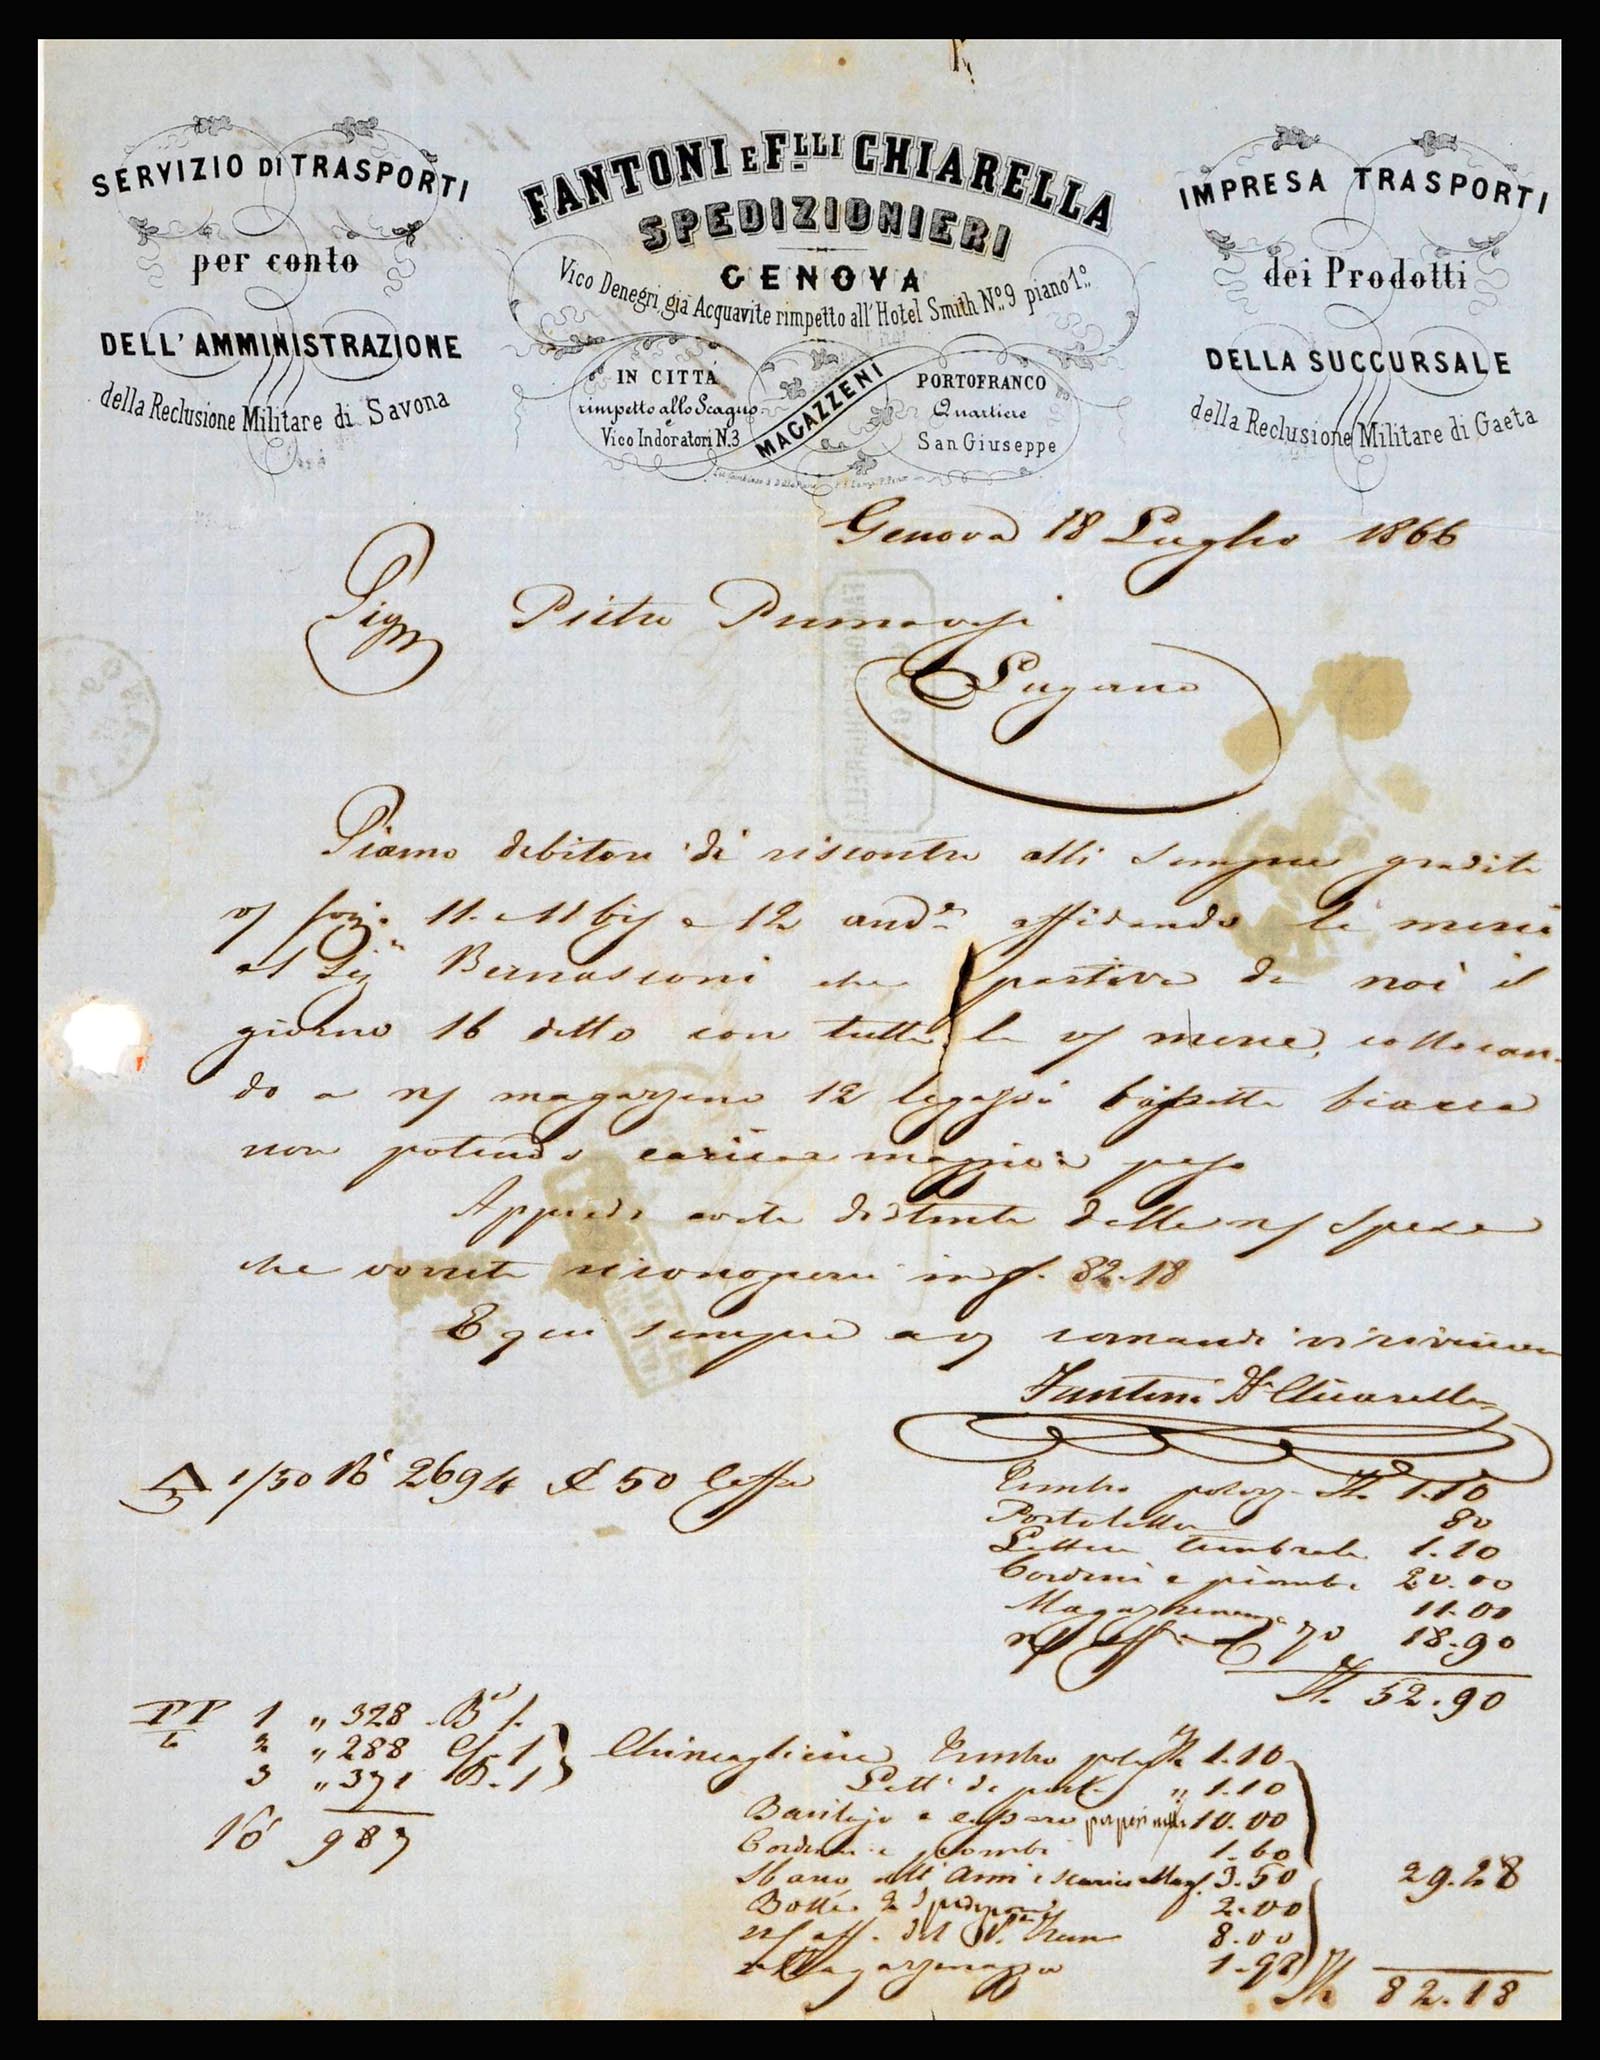 SERVIZIO DI TRASPORTI
per conto
DELL'AMMINISTRAZIONE
della Reclusione Militare di Savona
FANTONI E FLLI CHIARELLA
SPEDIZIONIERI
GENOVA
Vico Denegri, già Acquavite rimpetto all'Hotel Smith No. 9 piano 1o.
IN CITTÀ
rimpetto allo Scagno
e
Vico Indoratori N. 3
MAGAZZENI
PORTOFRANCO
Quartiere
San Giuseppe
IMPRESA TRASPORTI
dei Prodotti
DELLA SUCCURSALE
della Reclusione Militare di Gaeta
Genova 18 Luglio 1866
Sigr Pietro Primavesi
Lugano
Siamo debitori di riscontro alli sempre gradite
11. 11 bis e 12 andte affidando le merci
al Sigr Bernasconi che partiva da noi il
giorno 16 detto con tutte le v/ merci, collocan-
do a n/ magazzeno 12 biacca
non potendo caricar maggior peso
Appiedi avete distinta delle n/ spese
che vorrete riconoscerci in f. 82.18
E qui sempre a v/ comandi vi riveriamo
Fantoni Fi Chiarella
1/50 No 2694 50 Caffè
Timbro It. 1.10
80
Lettera timbrata 1.10
Cordini e piombi 20.00
Magazzenaggio 11.00
70 18.90
It. 52.90
PP 1 " 328 1.
2 " 288 1
3 " 371 1
No 987
Chincaglierie Timbro It. 1.10
Lett. di porto " 1.10
10.00
Cordini e piombi 1.60
3.50
29.28
2.00
8.00
Magazzenaggio 1.98
It. 82.18